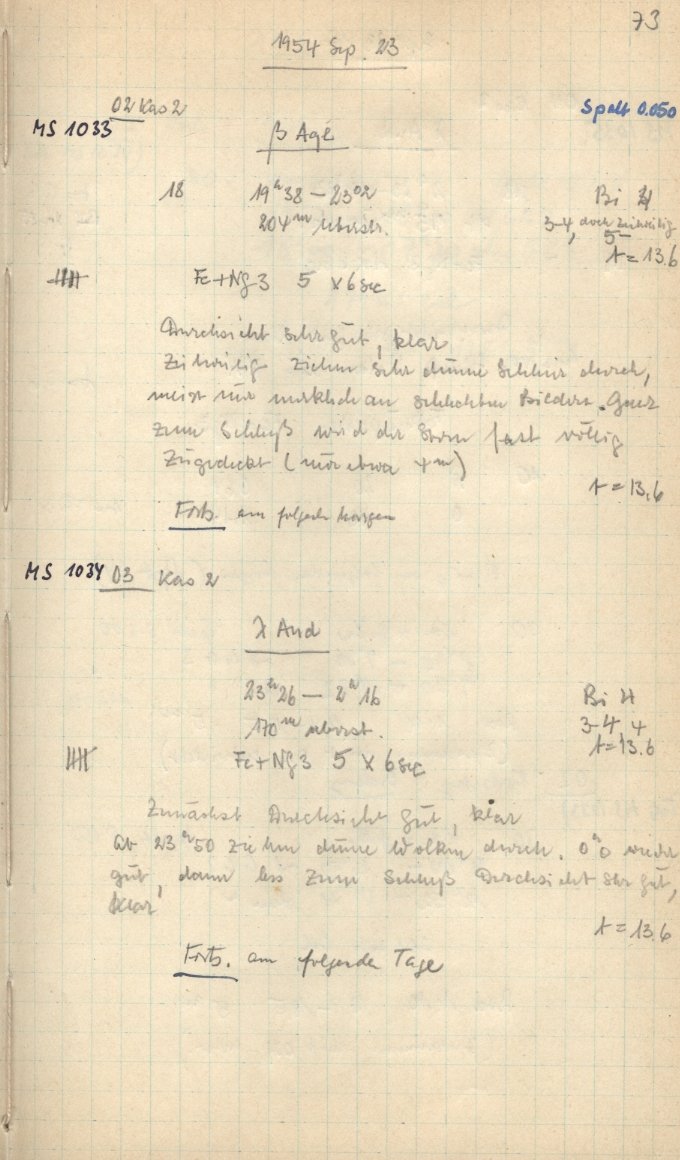 73
1954 Sep. 23
02 Kas 2
Spalt 0.050
MS 1033
β Aql
18 19ʰ38 – 23⁰2 Bi
204ᵐ überstr. 3-4, doch zeitweilig
5
t = 13.6
Fe+Ng3 5 x 6 sec
Durchsicht sehr gut, klar
Zeitweilig ziehen sehr dünne Schleier durch,
meist nur merklich an schlechten Bildern. Ganz
zum Schluß wird der Stern fast völlig
Zugedeckt (nur etwa 4ᵐ)
t = 13.6
Forts. am folgenden Morgen
MS 1034 03 Kas 2
λ And
23ʰ26 – 2ʰ16 Bi 4
170ᵐ überstr. 3-4 4
t = 13.6
Fe+Ng3 5 x 6 sec
Zunächst Durchsicht gut, klar
ab 23ʰ50 ziehen dünne Wolken durch. 0ʰ0 wieder
gut, dann bis zum Schluß Durchsicht sehr gut,
klar
t = 13.6
Forts. am folgenden Tage